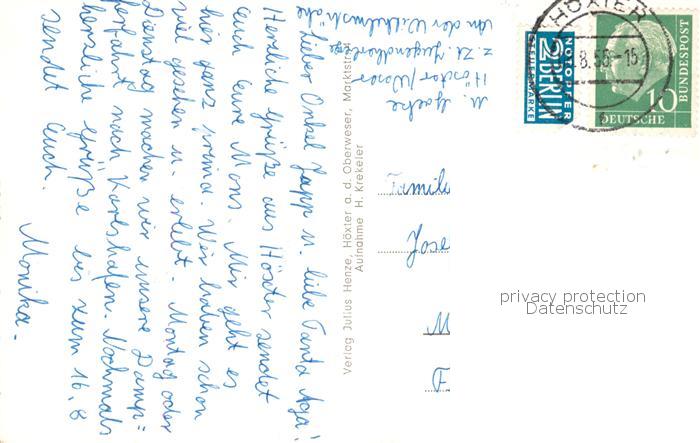 Lieber Onkel Japp u. liebe Tante Aga!
Herzliche Grüße aus Höxter sendet
euch eure Moni. Mir geht es
hier ganz prima. Wir haben schon
viel gesehen u. erlebt. Montag oder
Dienstag machen wir unsere Damp=
ferfahrt nach Karlshafen. Nochmals
herzliche Grüße bis zum 16.8
sendet Euch
Monika.
M.
Höxter/Weser
z. Zt. Jugendherberge
An der Wilhelmshöhe
Verlag Julius Henze, Höxter a. d. Oberweser, Marktstr.
Aufnahme H. Krekeler
HÖXTER
8.55-15
NOTOPFER
2 BERLIN
STEUERMARKE
10
DEUTSCHE
BUNDESPOST
Famili
Jose
M
F
privacy protection
Datenschutz